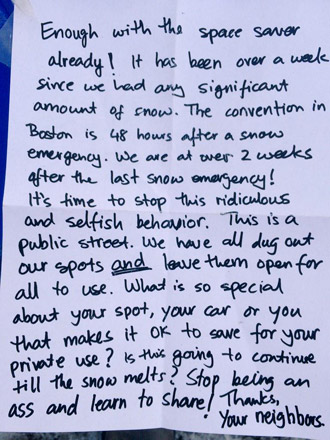 Enough with the space saver
already! It has been over a week
since we had any significant
amount of snow. The convention in
Boston is 48 hours after a snow
emergency. We are at over 2 weeks
after the last snow emergency!
It's time to stop this ridiculous
and selfish behavior. This is a
public street. We have all dug out
our spots and leave them open for
all to use. What is so special
about your spot, your car or you
that makes it OK to save for your
private use? Is this going to continue
till the snow melts? Stop being an
ass and learn to share! Thanks,
Your neighbors